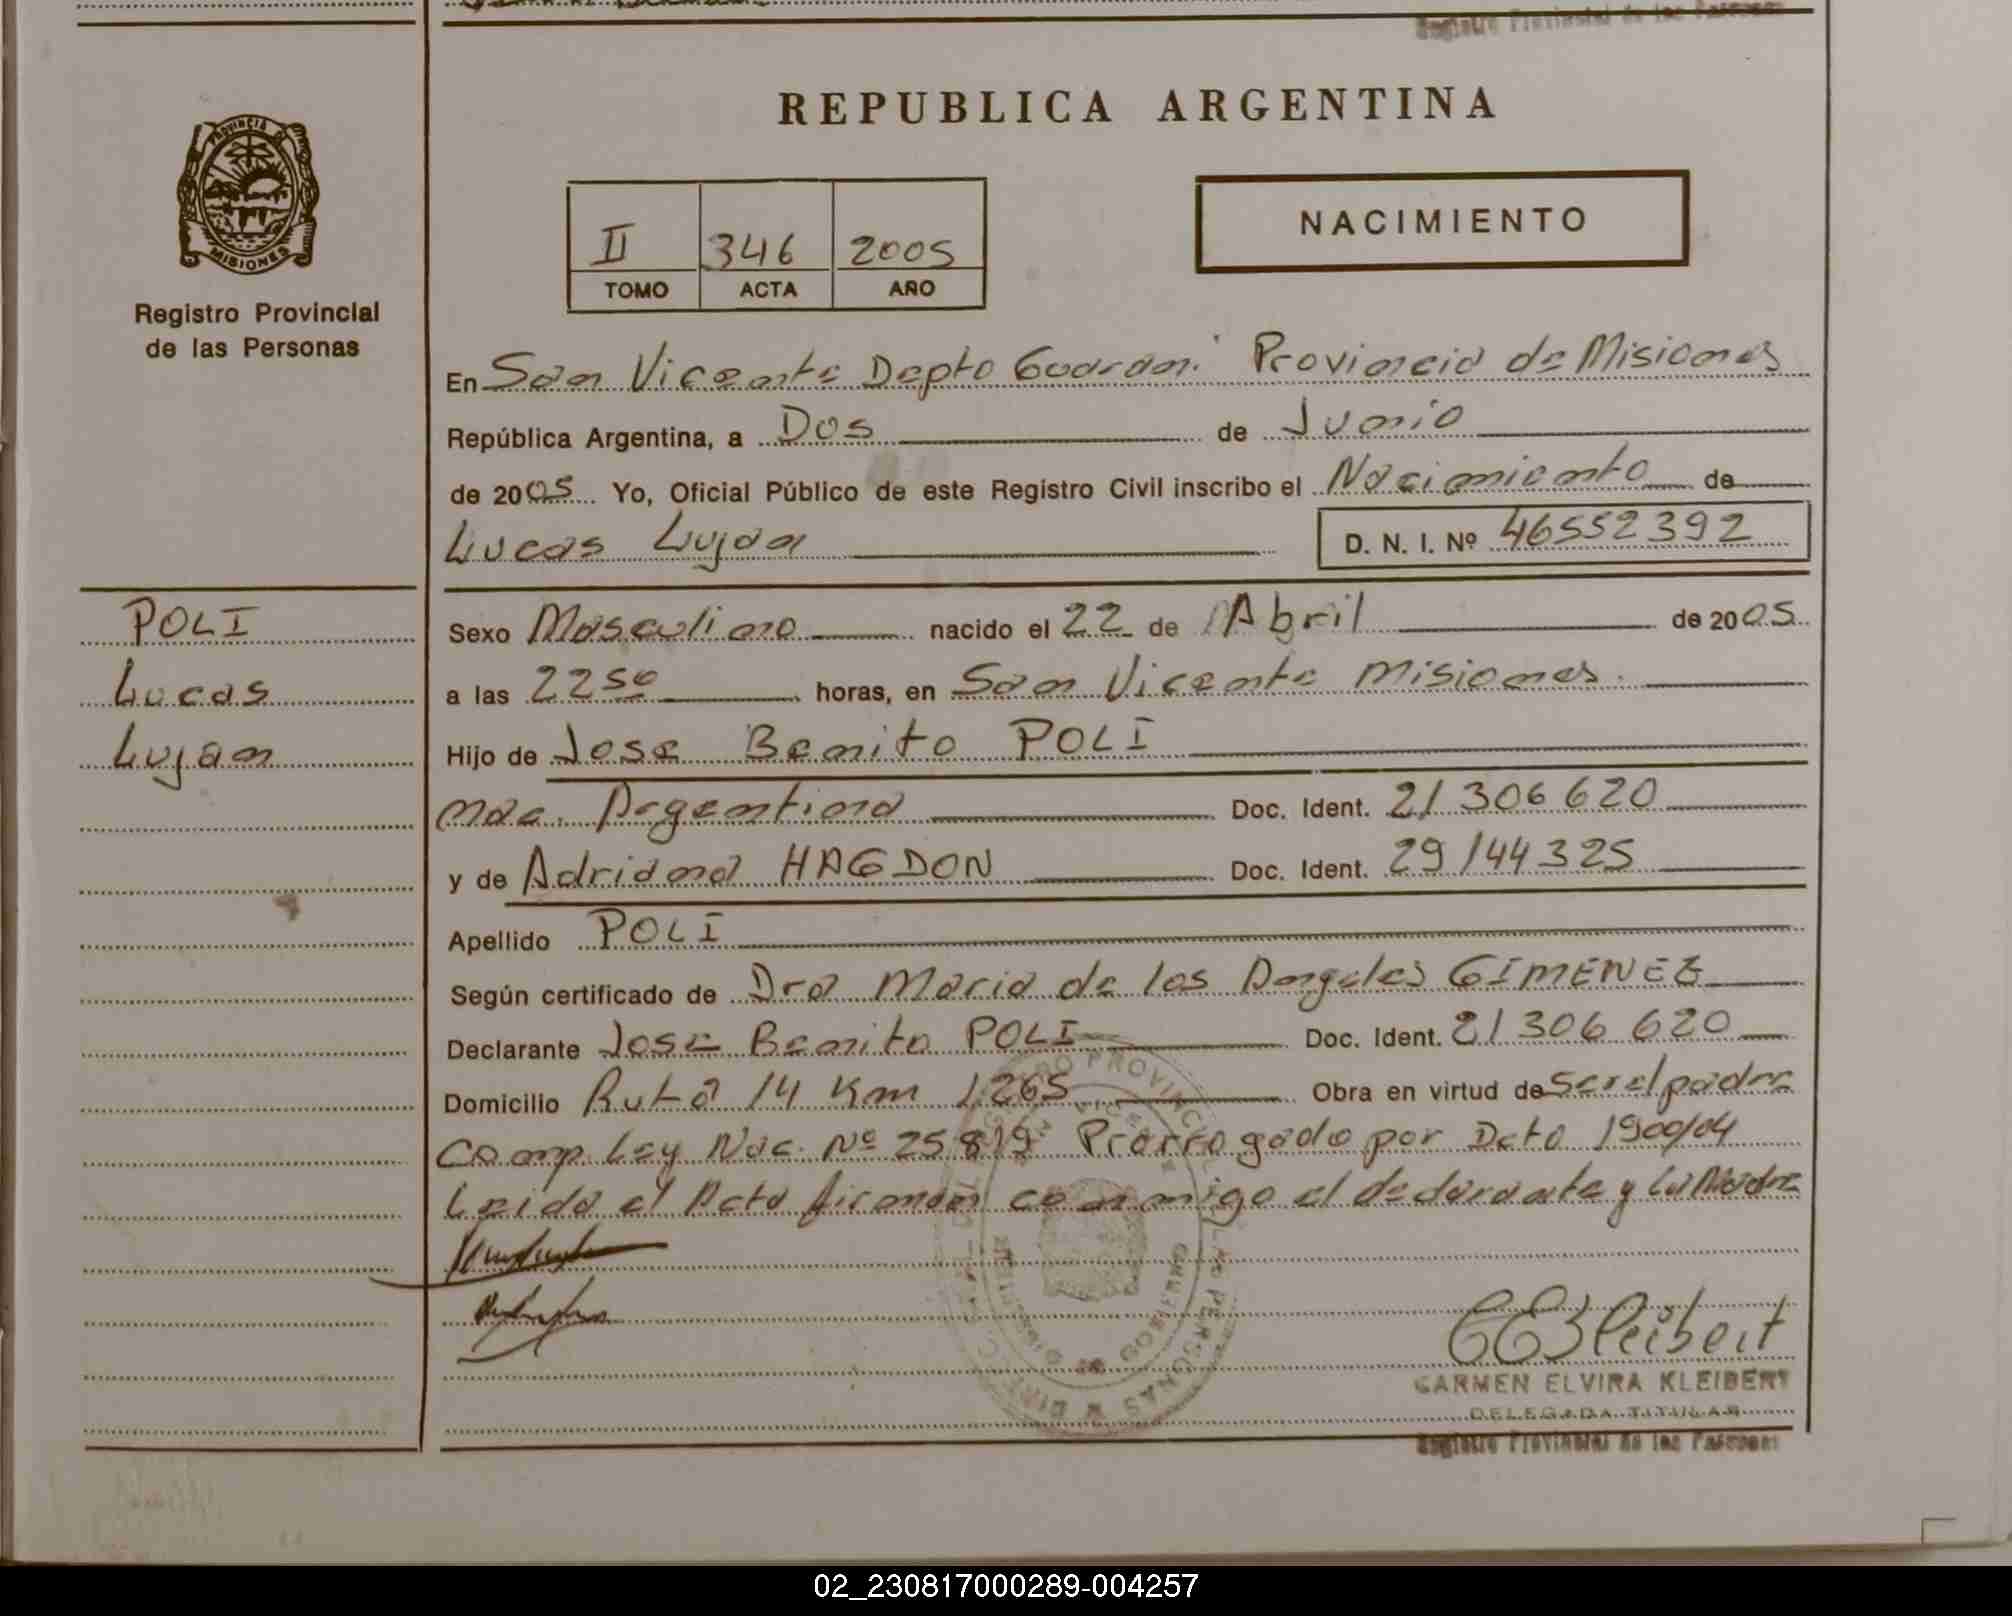 REPUBLICA ARGENTINA
PROVINCIA DE
MISIONES
Registro Provincial
de las Personas
II 346 2005
TOMO ACTA AÑO
NACIMIENTO
En San Vicente Depto Guarani Provincia de Misiones
República Argentina, a Dos de Junio
de 2005 Yo, Oficial Público de este Registro Civil inscribo el Nacimiento de
Lucas Lujan D. N. I. Nº 46552392
POLI
Lucas
Lujan
Sexo Masculino nacido el 22 de Abril de 2005
a las 2250 horas, en San Vicente Misiones.
Hijo de Jose Benito POLI
nac. Argentina Doc. Ident. 21 306 620
y de Adriana HAGDON Doc. Ident. 29144325
Apellido POLI
Según certificado de Dra Maria de los Angeles GIMENEZ
Declarante Jose Benito POLI Doc. Ident. 21 306 620
Domicilio Ruta 14 Km 1265 Obra en virtud de ser el padre
Comp. Ley Nac. Nº 25.819 Prorrogado por Dcto 1900/04
Leida el Acta firman conmigo el declarante y la Madre
CARMEN ELVIRA KLEIBERT
DELEGADA TITULAR
Registro Provincial de las Personas
02_230817000289-004257